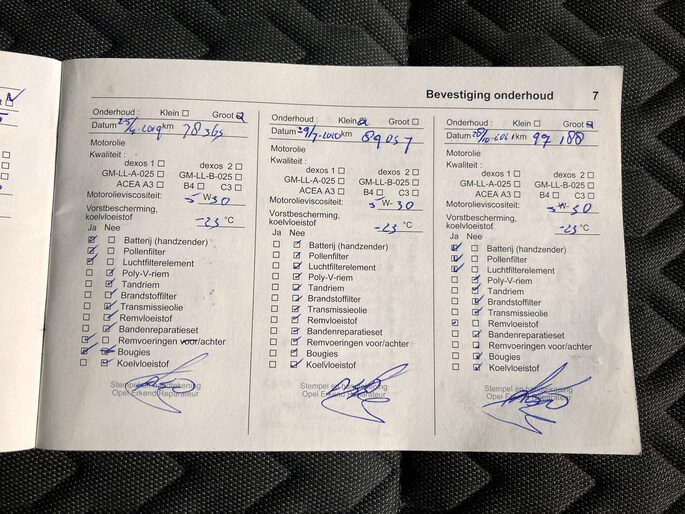 Bevestiging onderhoud 7
Onderhoud : Klein Groot
Datum 25/4-2019 km 78365
Motorolie
Kwaliteit :
dexos 1 dexos 2
GM-LL-A-025 GM-LL-B-025
ACEA A3 B4 C3
Motorolieviscositeit: 5 W-30
Vorstbescherming,
koelvloeistof -23 °C
Ja Nee
Batterij (handzender)
Pollenfilter
Luchtfilterelement
Poly-V-riem
Tandriem
Brandstoffilter
Transmissieolie
Remvloeistof
Bandenreparatieset
Remvoeringen voor/achter
Bougies
Koelvloeistof
Stempel en handtekening
Opel Erkend Reparateur
Onderhoud : Klein Groot
Datum 29/7-2020 km 89057
Motorolie
Kwaliteit :
dexos 1 dexos 2
GM-LL-A-025 GM-LL-B-025
ACEA A3 B4 C3
Motorolieviscositeit: 5 W-30
Vorstbescherming,
koelvloeistof -23 °C
Ja Nee
Batterij (handzender)
Pollenfilter
Luchtfilterelement
Poly-V-riem
Tandriem
Brandstoffilter
Transmissieolie
Remvloeistof
Bandenreparatieset
Remvoeringen voor/achter
Bougies
Koelvloeistof
Stempel en handtekening
Opel Erkend Reparateur
Onderhoud : Klein Groot
Datum 28/10-2021 km 97 188
Motorolie
Kwaliteit :
dexos 1 dexos 2
GM-LL-A-025 GM-LL-B-025
ACEA A3 B4 C3
Motorolieviscositeit: 5 W-30
Vorstbescherming,
koelvloeistof -23 °C
Ja Nee
Batterij (handzender)
Pollenfilter
Luchtfilterelement
Poly-V-riem
Tandriem
Brandstoffilter
Transmissieolie
Remvloeistof
Bandenreparatieset
Remvoeringen voor/achter
Bougies
Koelvloeistof
Stempel en handtekening
Opel Erkend Reparateur